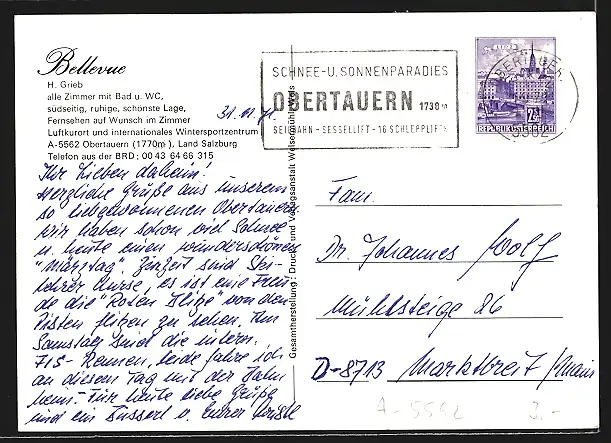 Bellevue
H. Grieb
alle Zimmer mit Bad u. WC,
südseitig, ruhige, schönste Lage,
Fernsehen auf Wunsch im Zimmer
Luftkurort und internationales Wintersportzentrum
A-5562 Obertauern (1770m), Land Salzburg
Telefon aus der BRD; 00 43 64 66 315
31.01.
Ihr Lieben daheim!
Herzliche Grüße aus unserem
so liebgewonnenen Obertauern.
Wir haben schon viel Schnee
u. heute einen wunderschönen
"Märztag". Zurzeit sind Ski-
lehrer Kurse, es ist eine Freu-
de die "Roten Flige" von den
Pisten flitzen zu sehen. Am
Samstag sind die intern.
FIS-Rennen, leide fahre ich
an diesem Tag mit der Bahn
heim. Für heute liebe Grüße
und ein Bussерl v. Eurer
Gesamtherstellung: Druck- und Verlagsanstalt Welsermühl, Wels
SCHNEE-U. SONNENPARADIES
OBERTAUERN 1738 m
SEILBAHN - SESSELLIFT - 16 SCHLEPPLIFTE
OBERTAUERN
5562
2S
REPUBLIK ÖSTERREICH
Fam.
Dr. Johannes Wolf
Mühlsteige 26
D-8713 Marktbreit/Main
A-5592
3.-